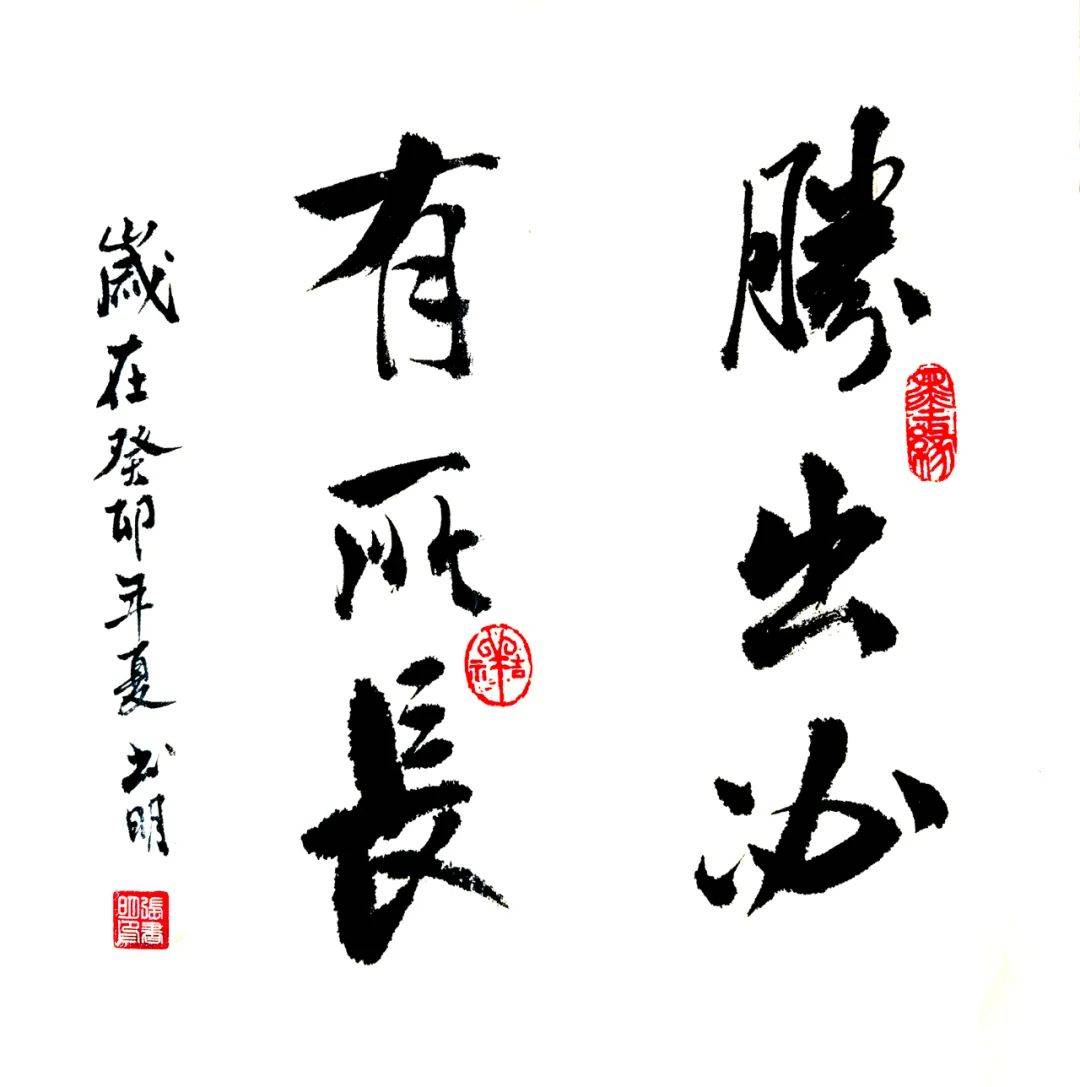 勝出必
有所長
歲在癸卯年夏 书明
墨缘
吉祥
張書明印